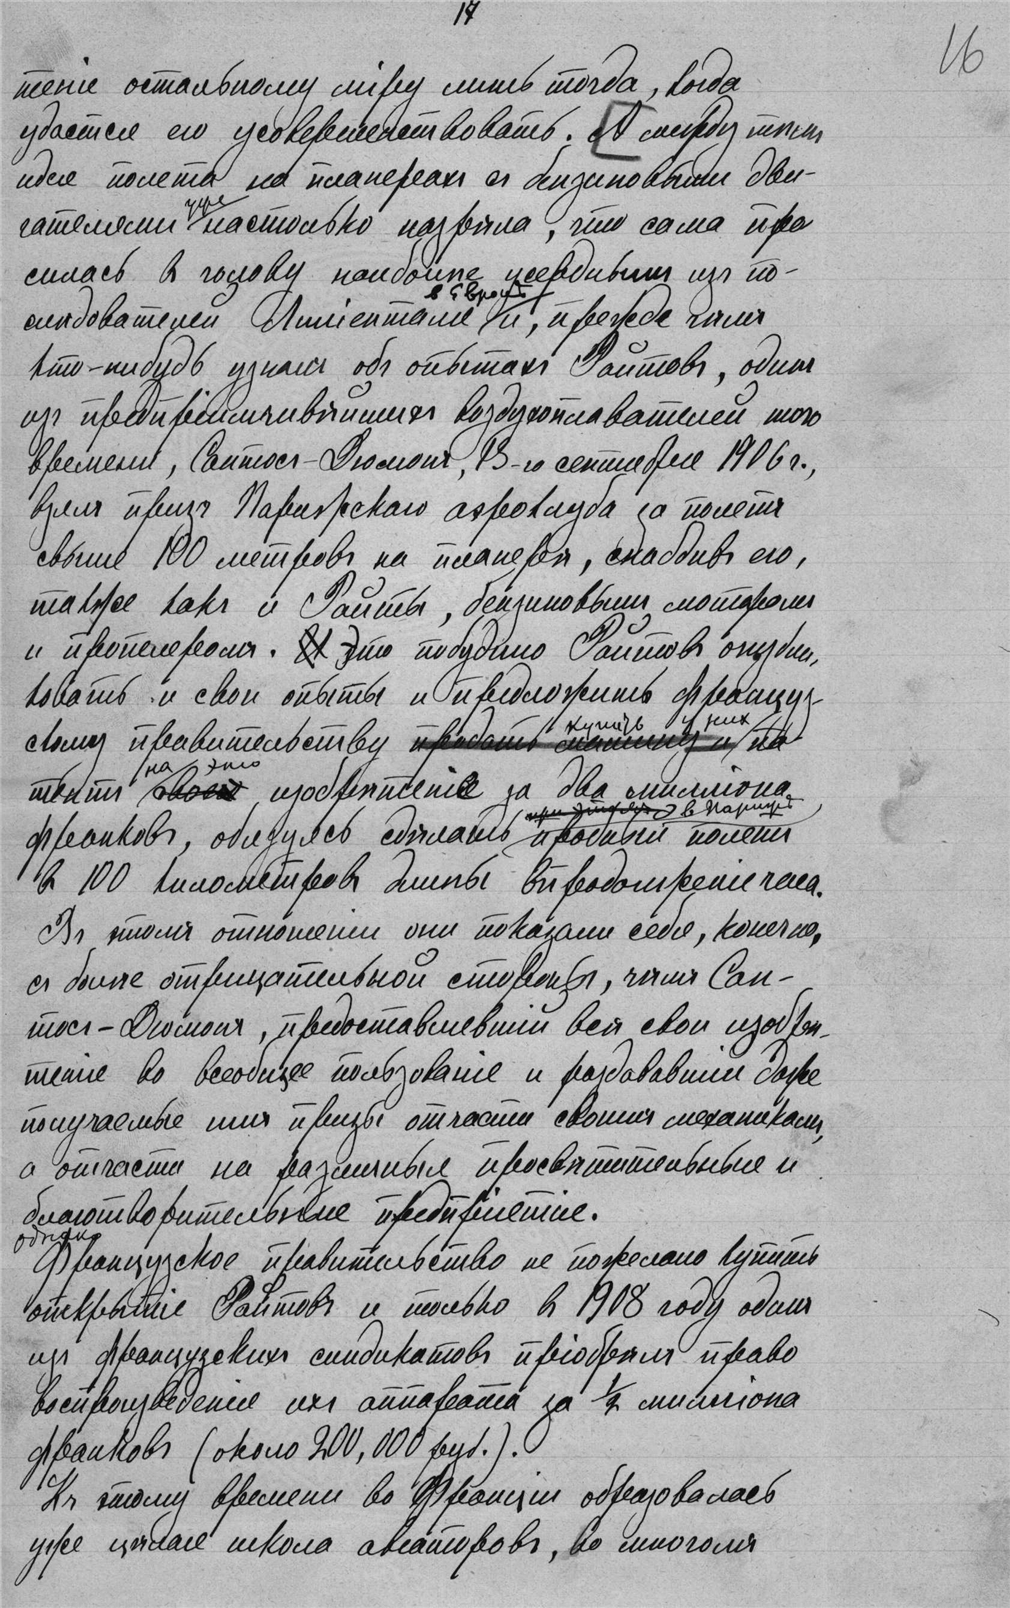 17
16
теніе остальному міру лишь тогда, когда
удастся его усовершенствовать. А между тѣмъ
идея полета на планерахъ съ бензиновыми дви-
гателями уже настолько назрѣла, что сама про
силась въ голову наиболѣе усердныхъ изъ по-
слѣдователей Лиліенталя въ Европѣ и, прежде чѣмъ
кто-нибудь узналъ объ опытахъ Райтовъ, одинъ
изъ предпріимчивѣйшихъ воздухоплавателей того
времени, Сантосъ-Дюмонъ, 13-го сентября 1906 г.,
взялъ призъ Парижскаго аэроклуба за полетъ
свыше 100 метровъ на планерѣ, снабдивъ его,
также какъ и Райты, бензиновымъ моторомъ
и пропелеромъ. И Это побудило Райтовъ опубли-
ковать и свои опыты и предложить француз-
скому правительству продать машину и купить у них па
тентъ своей на это изобрѣтеніе за два милліона
франковъ, обязуясь сдѣлать при этомъ в Парижѣ пробный полетъ
въ 100 километровъ длины впродолженіе часа.
Въ этомъ отношеніи они показали себя, конечно,
съ болѣе отрицательной стороны, чѣмъ Сан-
тосъ-Дюмонъ, предоставлявшій всѣ свои изобрѣ-
тенія во всеобщее пользованіе и раздававшій даже
получаемые имъ призы отчасти своимъ механикамъ,
а отчасти на различныя просвѣтительныя и
благотворительныя предпріятія.
Однако Французское правительство не пожелало купить
открытіе Райтовъ и только въ 1908 году одинъ
изъ французскихъ синдикатовъ пріобрѣлъ право
воспроизведенія ихъ аппарата за 1/2 милліона
франковъ (около 200,000 руб.).
Къ этому времени во Франціи образовалась
уже цѣлая школа авіаторовъ, во многомъ